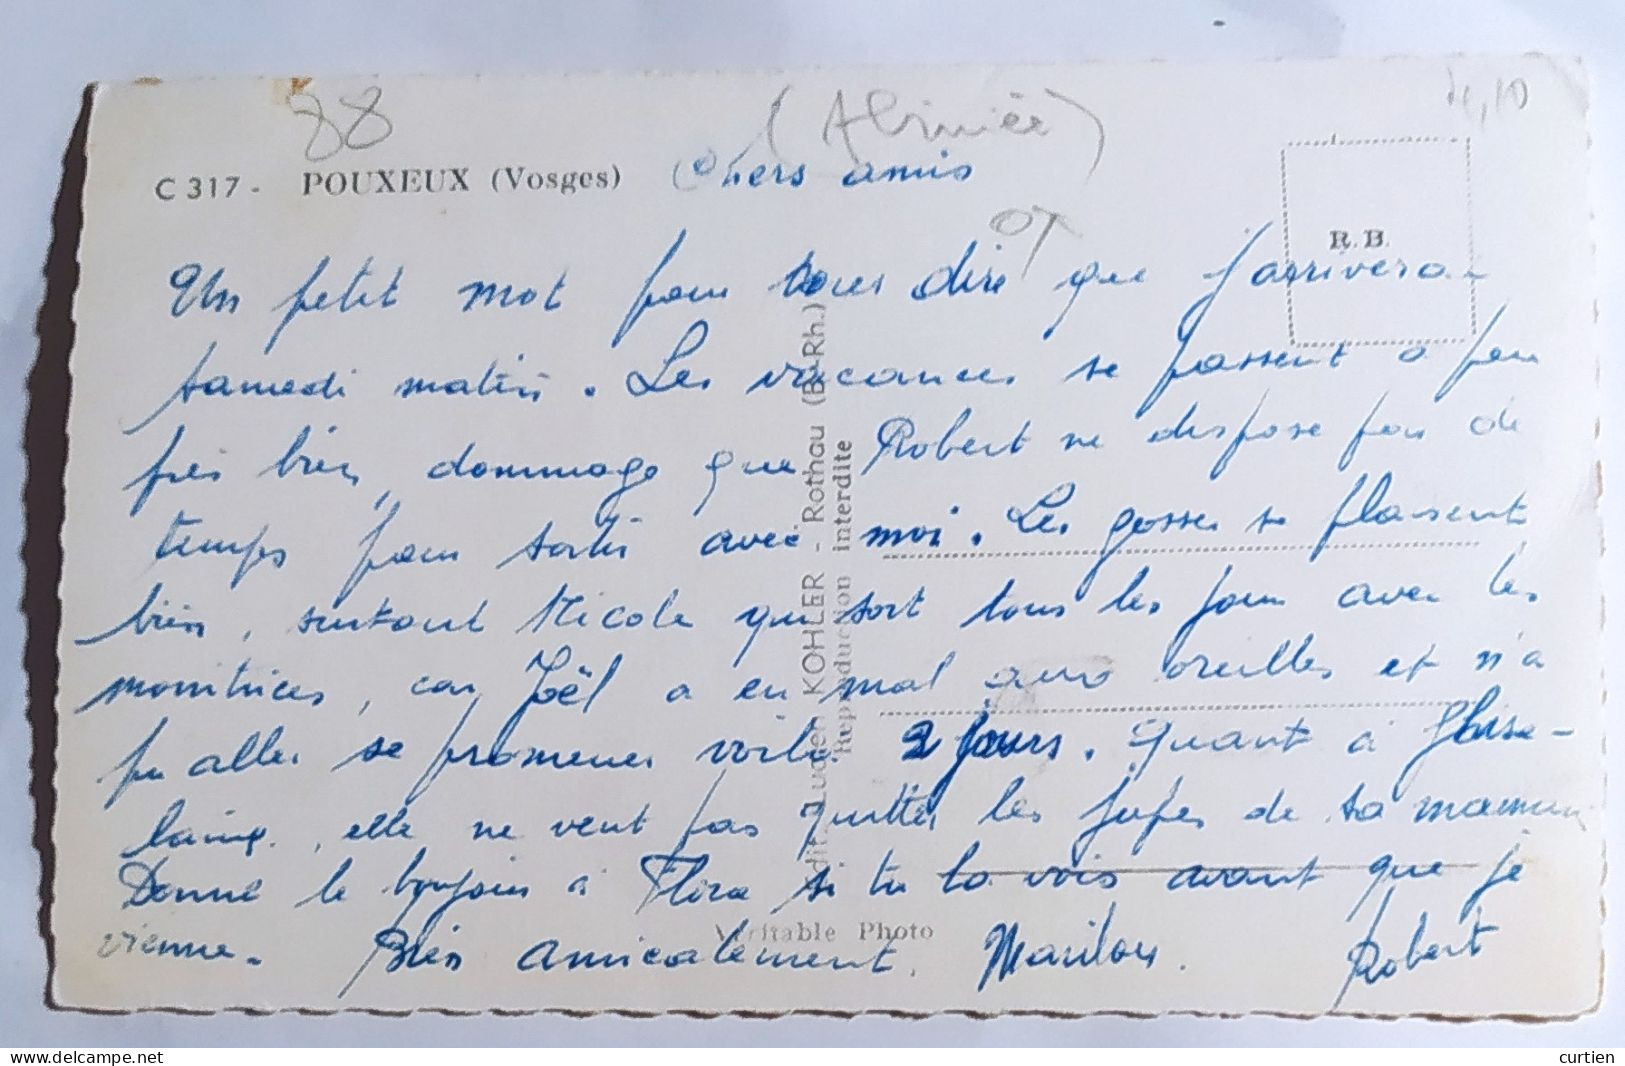 88
(Abimée)
4,10
C 317 - POUXEUX (Vosges)
Chers amis
R. B.
Un petit mot pour vous dire que j'arriverai
samedi matin. Les vacances se passent à peu
près bien, dommage que Robert ne dispose pas de
temps pour sortir avec moi. Les gosses se plaisent
bien, surtout Nicole qui sort tous les jours avec les
monitrices, car Joël a eu mal aux oreilles et n'a
pu aller se promener voilà 2 jours. Quant à Ghise-
laine, elle ne veut pas quitter les jupes de sa maman
Donne le bonjour à Flora si tu la vois avant que je
vienne. Bien amicalement. Marilou. Robert
Edit. Lucien KOHLER - Rothau (B.-Rh.)
Reproduction interdite
Véritable Photo
www.delcampe.net
curtien